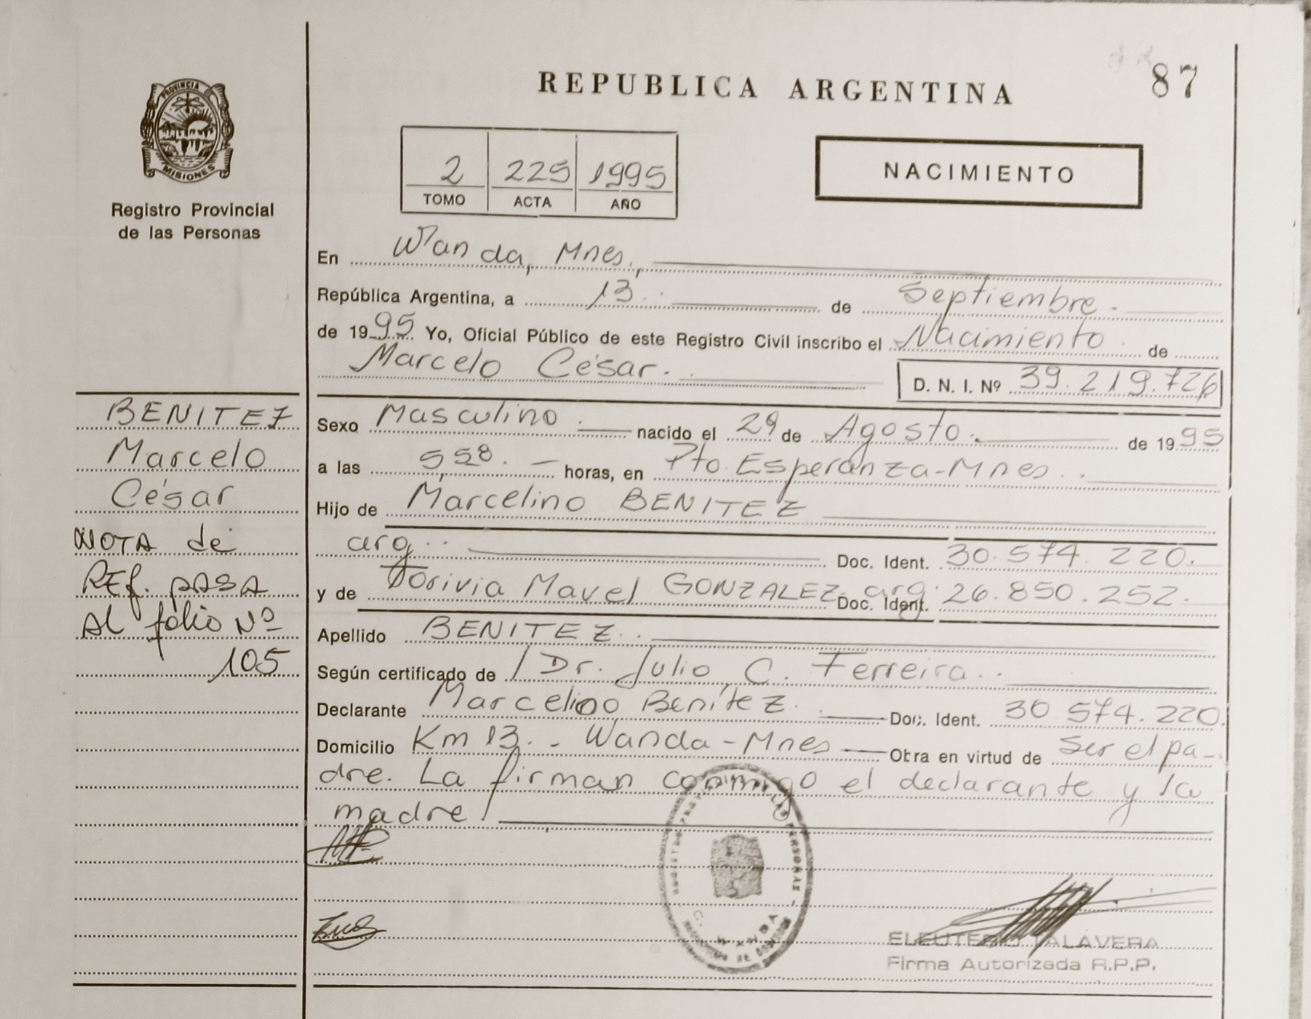 REPUBLICA ARGENTINA
87
PROVINCIA DE
MISIONES
Registro Provincial
de las Personas
2 225 1995
TOMO ACTA AÑO
NACIMIENTO
En Wanda, Mnes,
República Argentina, a 13 de Septiembre
de 1995 Yo, Oficial Público de este Registro Civil inscribo el Nacimiento de
Marcelo César. D. N. I. Nº 39.219.726
BENITEZ
Marcelo
César
NOTA de
REf. pASA
Al folio Nº
105
Sexo Masculino nacido el 29 de Agosto de 1995
a las 5,58 horas, en Pto. Esperanza-Mnes
Hijo de Marcelino BENITEZ
arg. Doc. Ident. 30.574.220.
y de Mavel GONZALEZ arg. Doc. Ident. 26.850.252.
Apellido BENITEZ
Según certificado de Dr. Julio C. Ferreira
Declarante Marcelino Benítez Doc. Ident. 30 574.220.
Domicilio Km 13 - Wanda-Mnes Obra en virtud de Ser el pa-
dre. La firman conmigo el declarante y la
madre
ELEUTERIO TALAVERA
Firma Autorizada R.P.P.